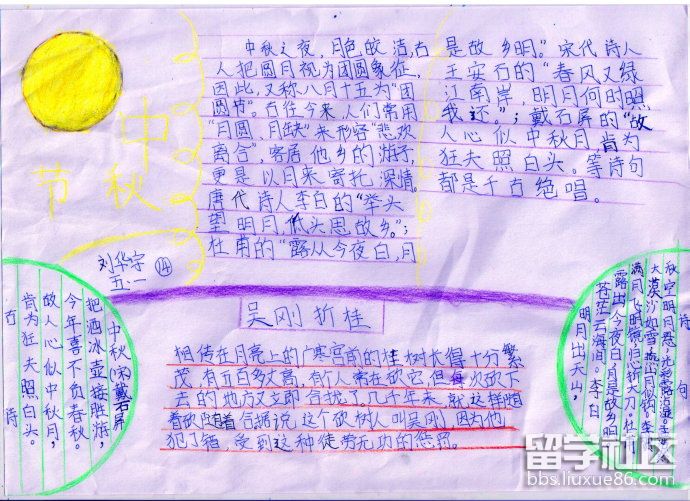 中秋节
中秋之夜，月色皎洁，古
人把圆月视为团圆象征，
因此，又称八月十五为“团
圆节”。古往今来，人们常用
“月圆、月缺”来形容“悲欢
离合”，客居他乡的游子，
更是以月来寄托深情。
唐代诗人李白的“举头
望明月，低头思故乡。”；
杜甫的“露从今夜白，月
是故乡明。”宋代诗人
王安石的“春风又绿
江南岸，明月何时照
我还。”；戴石屏的“故
人心似中秋月，肯为
狂夫照白头。等诗句
都是千古绝唱。
刘华宇
五：一
⑭
吴刚折桂
相传在月亮上的广寒宫前的桂树长得十分繁
茂，有五百多丈高，有个人常在砍它，但每次砍下
去的地方又立即合拢了，几千年来，就这样随
着砍随着合据说这个砍树人叫吴刚，因为他
犯了错，受到这种徒劳无功的惩罚。
中秋（宋）戴石屏
把酒冰壶接胜游，
今年喜不负春秋。
故人心似中秋月，
肯为狂夫照白头。
古诗
诗句
大漠沙如雪，燕山月似钩。李
满月飞明镜，归心折大刀。杜
露从今夜白，月是故乡明
明月出天山，
苍茫云海间。李白
留学社区
bbs.liuxue86.com